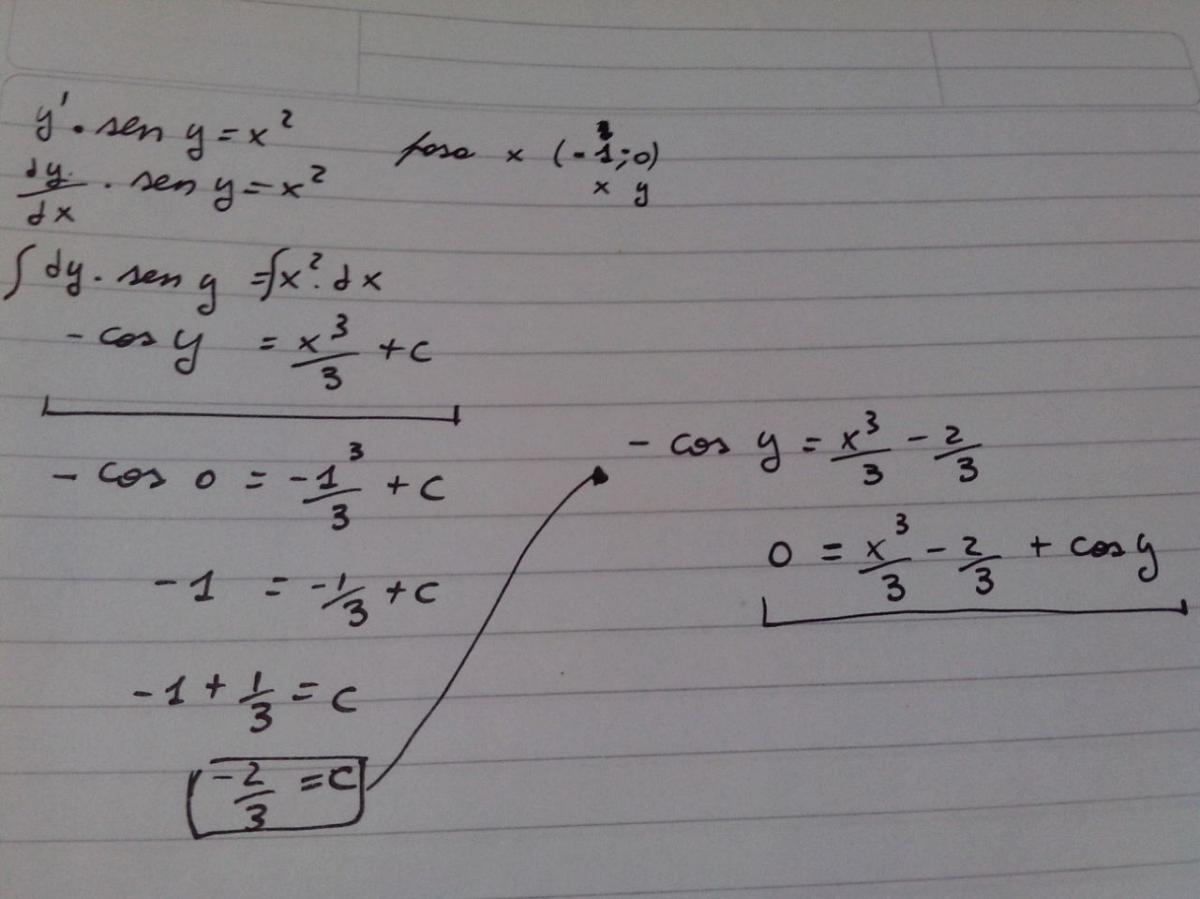 y' · sen y = x²
pasa x (-1;0)
x y
dy/dx · sen y = x²
∫ dy · sen y = ∫x² · dx
- cos y = x³/3 + c
- cos 0 = -1³/3 + c
-1 = -1/3 + c
-1 + 1/3 = c
-2/3 = c
- cos y = x³/3 - 2/3
0 = x³/3 - 2/3 + cos y